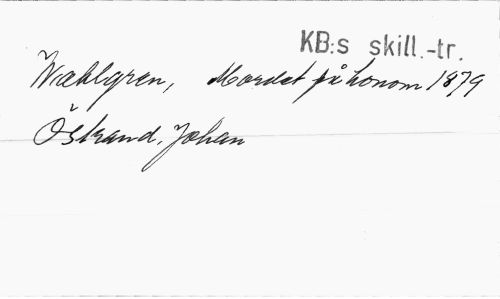 KB:s skill.-tr.
Wahlgren, Mordet på honom 1879
Östrand, Johan